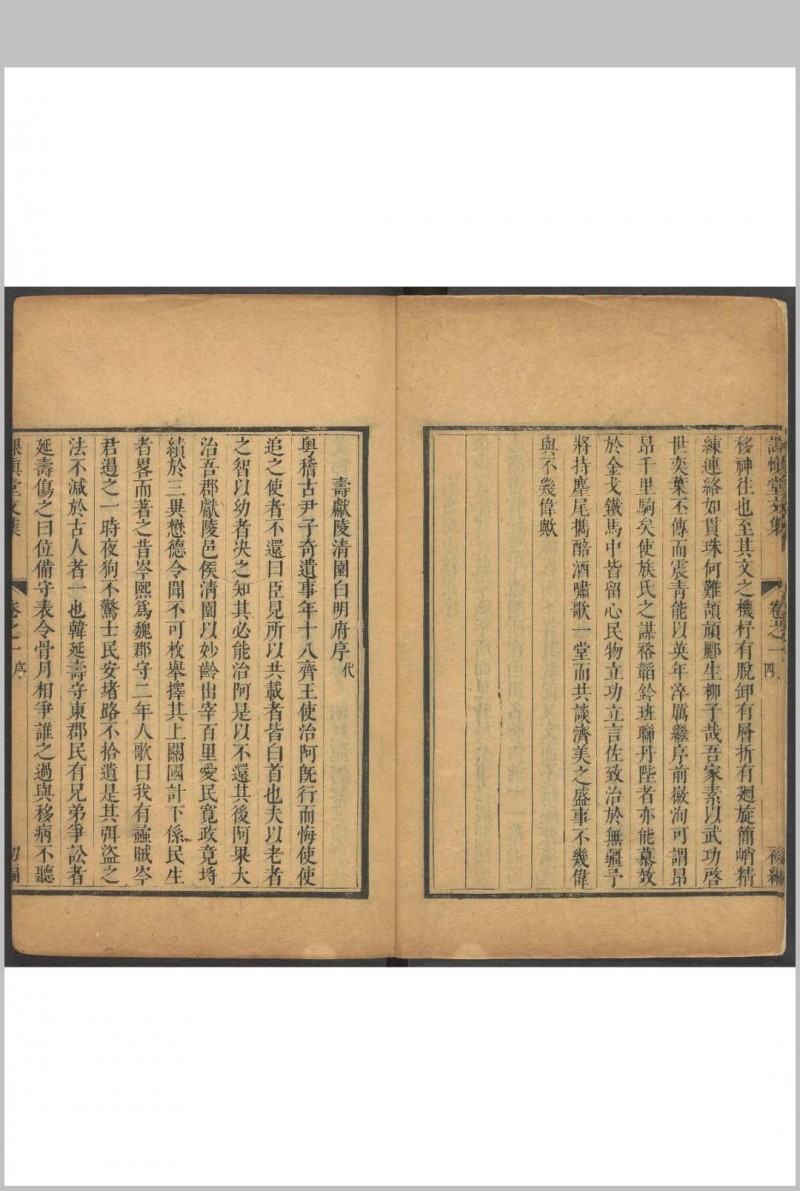 移神往也至其文之機杼有脫卸有層折有廻旋簡峭精
練連絡如貫珠何難頡頏酈生柳子哉吾家素以武功啓
世奕葉丕傳而震青能以英年淬厲繼序前徽洵可謂昂
昂千里駒矣使族氏之謀裕韜鈐班聯丹陛者亦能慕效
於金戈鐵馬中皆留心民物立功立言佐致治於無疆予
將持麈尾携醅酒嘯歌一堂而共談濟美之盛事不幾偉
與不幾偉歟
壽獻陵清園白明府序代
粵稽古尹子奇遺事年十八齊王使治阿旣行而悔使使
追之使者不還曰臣見所以共載者皆白首也夫以老者
之智以幼者决之知其必能治阿是以不還其後阿果大
治吾郡獻陵邑侯清園以妙齡出宰百里愛民寬政竟埒
績於三異懋德令聞不可枚舉擇其上關國計下係民生
者畧而著之昔岑熙爲魏郡守二年人歌曰我有蟊賊岑
君遏之一時夜狗不驚士民安堵路不拾遺是其弭盜之
法不減於古人者一也韓延壽守東郡民有兄弟爭訟者
延壽傷之曰位備守表令骨月相爭誰之過與移病不聽
堂文集 卷之一 序 初編